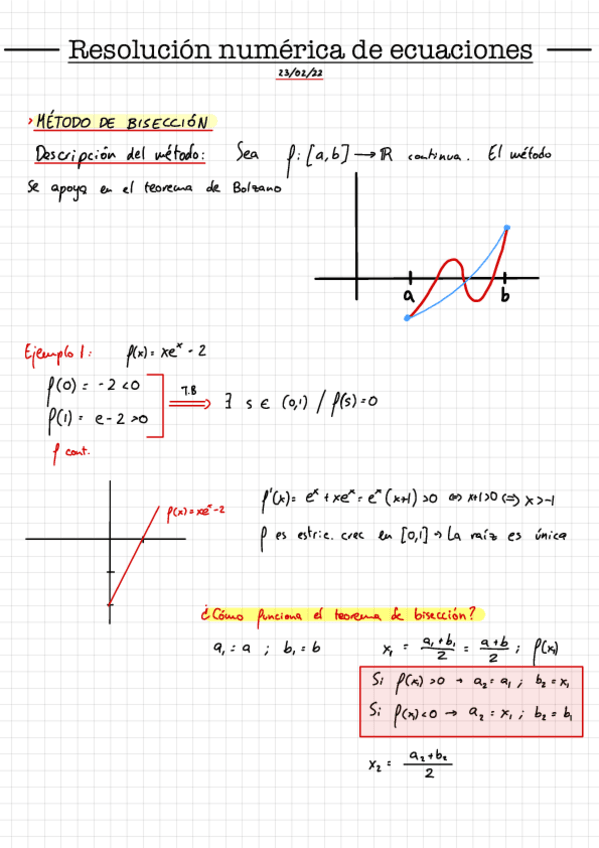 Resolución numérica de ecuaciones
23/02/22
> MÉTODO DE BISECCIÓN
Descripción del método: Sea f: [a,b] → ℝ continua. El método
se apoya en el teorema de Bolzano
a b
Ejemplo 1: f(x) = xeˣ - 2
f(0) = -2 < 0
f(1) = e - 2 > 0
f cont.
T.B
⇒ ∃ s ∈ (0,1) / f(s) = 0
f(x) = xeˣ - 2
f'(x) = eˣ + xeˣ = eˣ (x+1) > 0 ⇔ x+1 > 0 ⇔ x > -1
f es estric. crec en [0,1] → La raíz es única
¿Cómo funciona el teorema de bisección?
a₁ = a ; b₁ = b x₁ = (a₁ + b₁)/2 = (a + b)/2 ; f(x₁)
Si f(x₁) > 0 → a₂ = a₁ ; b₂ = x₁
Si f(x₁) < 0 → a₂ = x₁ ; b₂ = b₁
x₂ = (a₂ + b₂)/2